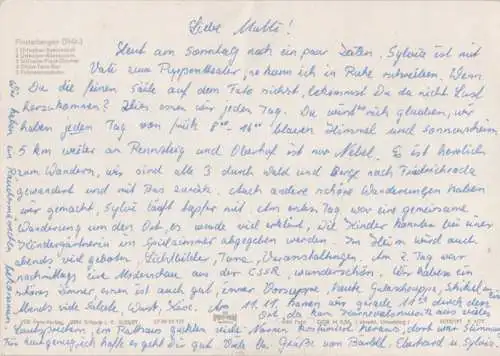 Liebe Mutti!
Finsterbergen (Thür.)
Heut am Sonntag noch ein paar Zeilen, Sylvia ist mit
Vati zum Puppentheater, so kann ich in Ruhe schreiben. Wenn
Du die feinen Säle auf dem Foto siehst, bekommst Du da nicht Lust
herzukommen? Hier essen wir jeden Tag. Du wirst mich glauben, wir
haben jeden Tag von früh 8°° - 16°° blauen Himmel und Sonnenschein
5 km weiter am Rennsteig und Oberhof ist nur Nebel. Es ist herrlich
zum Wandern, wir sind alle 3 durch Wald und Berge nach Friedrichroda
gewandert und mit Bus zurück. Auch andere schöne Wanderungen haben
wir gemacht, Sylvia läuft tapfer mit. Am ersten Tag war eine gemeinsame
Wanderung um den Ort, es wurde viel erklärt, die Kinder konnten bei einer
Kindergärtnerin im Spielzimmer abgegeben werden. Im Heim wird auch
abends viel geboten, Lichtbilder, Tanz, Veranstaltungen. Am 2. Tag war
nachmittags eine Modenschau aus der CSSR, wunderschön. Wir haben ein
schönes Zimmer, essen ist auch gut, immer Vorsuppe, heute Gulaschsuppe, Schnitzel
Abends viel Salate, Wurst, Käse. Am 11.11. kamen wir grade 11¹¹ durch den
Ort, da kam Karnevalsmusik aus vielen
Lautsprechern, am Rathaus guckten viele Narren kostümiert heraus, dort war Stimmung
Für heut genug, ich hoffe es geht Dir gut. Viele lb. Grüße von Bärbel, Eberhard u. Sylvia